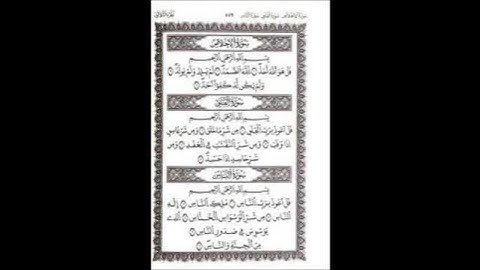 سورة الإخلاص
بسم الله الرحمن الرحيم
قل هو الله أحد ١ الله الصمد ٢ لم يلد ولم يولد ٣
ولم يكن له كفوا أحد ٤
سورة الفلق
بسم الله الرحمن الرحيم
قل أعوذ برب الفلق ١ من شر ما خلق ٢ ومن شر غاسق
إذا وقب ٣ ومن شر النفاثات في العقد ٤ ومن
شر حاسد إذا حسد ٥
سورة الناس
بسم الله الرحمن الرحيم
قل أعوذ برب الناس ١ ملك الناس ٢ إله
الناس ٣ من شر الوسواس الخناس ٤ الذي
يوسوس في صدور الناس ٥
من الجنة والناس ٦